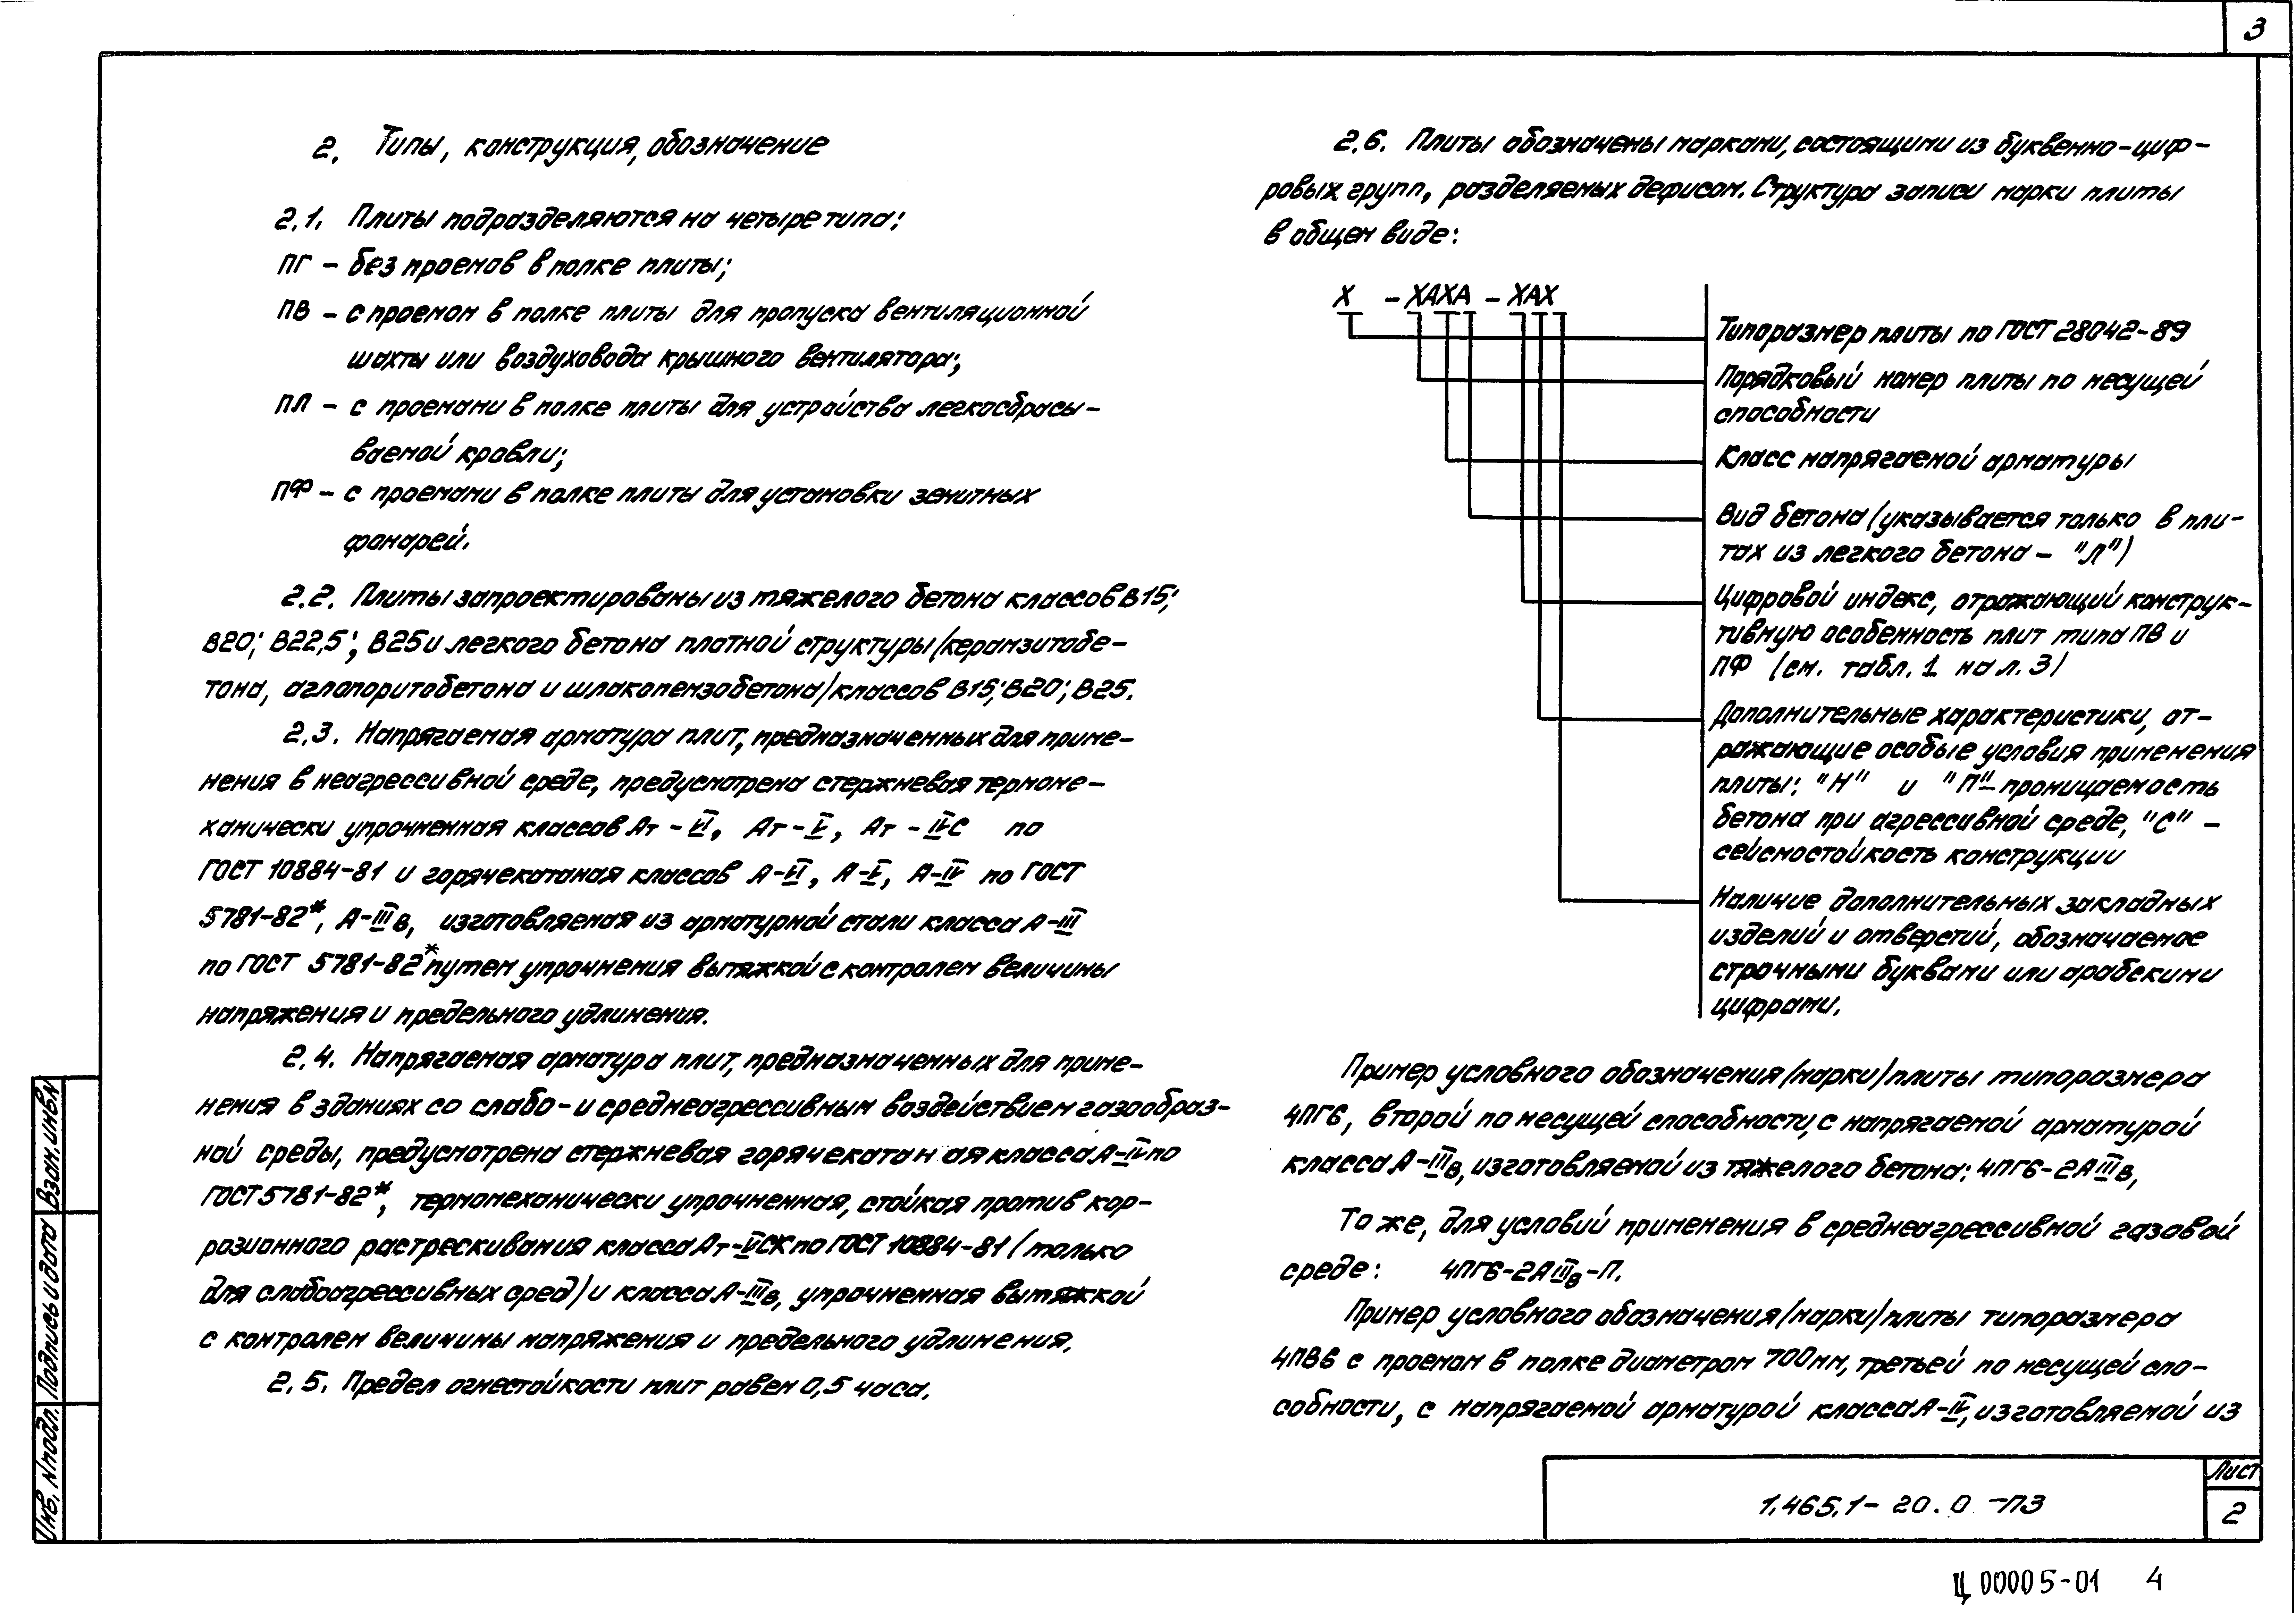 3
2. Типы, конструкция, обозначение
2.1. Плиты подразделяются на четыре типа:
ПГ – без проемов в полке плиты;
ПВ – с проемом в полке плиты для пропуска вентиляционной
шахты или воздуховода крышного вентилятора;
ПЛ – с проемами в полке плиты для устройства легкосбрасы-
ваемой кровли;
ПФ – с проемами в полке плиты для установки зенитных
фонарей.
2.2. Плиты запроектированы из тяжелого бетона классов В15;
В20; В22,5; В25 и легкого бетона плотной структуры /керамзитобе-
тона, аглопоритобетона и шлакопемзобетона/ классов В15; В20; В25.
2.3. Напрягаемая арматура плит, предназначенных для приме-
нения в неагрессивной среде, предусмотрена стержневая термоме-
ханически упрочненная классов Ат-VI, Ат-V, Ат-IVС по
ГОСТ 10884-81 и горячекатаная классов А-VI, А-V, А-IV по ГОСТ
5781-82*, А-IIIв, изготовляемая из арматурной стали класса А-III
по ГОСТ 5781-82* путем упрочнения вытяжкой с контролем величины
напряжения и предельного удлинения.
2.4. Напрягаемая арматура плит, предназначенных для приме-
нения в зданиях со слабо- и среднеагрессивным воздействием газообраз-
ной среды, предусмотрена стержневая горячекатаная класса А-IV по
ГОСТ 5781-82*, термомеханически упрочненная, стойкая против кор-
розионного растрескивания класса Ат-VСК по ГОСТ 10884-81 (только
для слабоагрессивных сред) и класса А-IIIв, упрочненная вытяжкой
с контролем величины напряжения и предельного удлинения.
2.5. Предел огнестойкости плит равен 0,5 часа.
2.6. Плиты обозначены марками, состоящими из буквенно-циф-
ровых групп, разделяемых дефисом. Структура записи марки плиты
в общем виде:
Х -ХАХА -ХАХ
Типоразмер плиты по ГОСТ 28042-89
Порядковый номер плиты по несущей
способности
Класс напрягаемой арматуры
Вид бетона (указывается только в пли-
тах из легкого бетона – "Л")
Цифровой индекс, отражающий конструк-
тивную особенность плит типа ПВ и
ПФ (см. табл. 1 на л. 3)
Дополнительные характеристики, от-
ражающие особые условия применения
плиты: "Н" и "П" – проницаемость
бетона при агрессивной среде, "С" –
сейсмостойкость конструкции
Наличие дополнительных закладных
изделий и отверстий, обозначаемое
строчными буквами или арабскими
цифрами.
Пример условного обозначения /марки/ плиты типоразмера
4ПГ6, второй по несущей способности, с напрягаемой арматурой
класса А-IIIв, изготовляемой из тяжелого бетона: 4ПГ6-2АIIIв,
То же, для условий применения в среднеагрессивной газовой
среде: 4ПГ6-2АIIIв-П.
Пример условного обозначения /марки/ плиты типоразмера
4ПВ6 с проемом в полке диаметром 700мм, третьей по несущей спо-
собности, с напрягаемой арматурой класса А-IV, изготовляемой из
Взам. инв N
Подпись и дата
Инв. N подл.
1.465.1-20.0 -ПЗ
Лист
2
Ц 00005-01 4